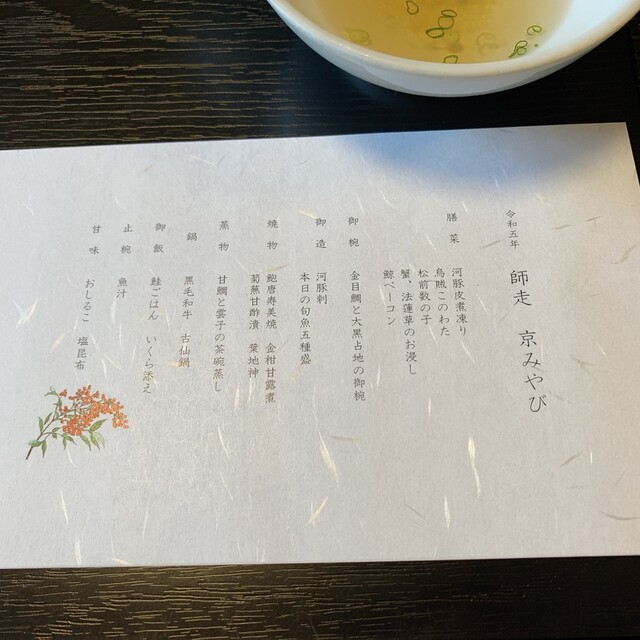 令和五年 師走 京みやび
膳菜 河豚皮煮凍り
烏賊このわた
松前数の子
蟹、法蓮草のお浸し
鯨ベーコン
御椀 金目鯛と大黒占地の御椀
御造 河豚刺
本日の旬魚五種盛
焼物 鮑唐寿美焼 金柑甘露煮
菊蕪甘酢漬 葉地神
蒸物 甘鯛と雲子の茶碗蒸し
鍋 黒毛和牛 古仙鍋
御飯 鮭ごはん いくら添え
止椀 魚汁
甘味 おしるこ 塩昆布